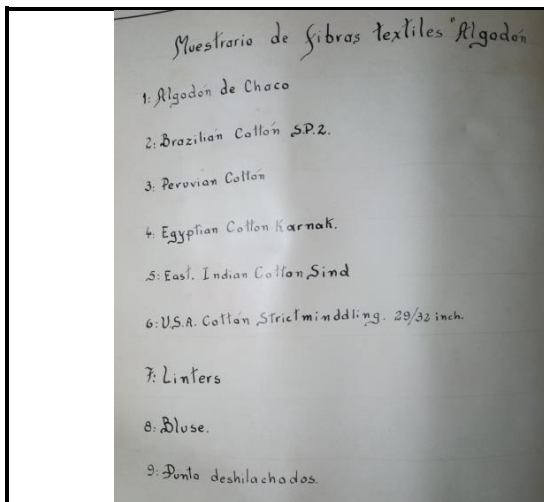 Muestrario de fibras textiles "Algodón
1: Algodón de Chaco
2: Brazilian Cottón S.P.2.
3: Peruvian Cottón
4: Egyptian Cotton Karnak.
5: East. Indian Cotton Sind
6: U.S.A. Cottón Strictminddling. 29/32 inch.
7: Linters
8: Bluse.
9: Punto deshilachados.